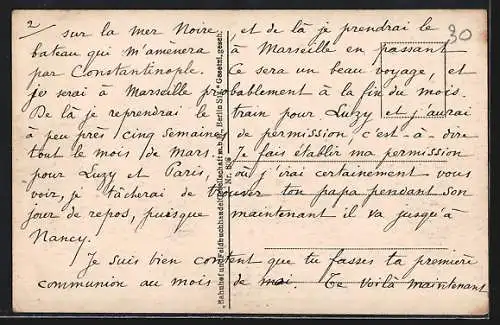 2
30
sur la mer Noire, et de là je prendrai le
bateau qui m'amènera à Marseille en passant
par Constantinople. Ce sera un beau voyage, et
je serai à Marseille probablement à la fin du mois.
De là je reprendrai le train pour Luzy et j'aurai
à peu près cinq semaines de permission c'est-à-dire
tout le mois de Mars. Je fais établir ma permission
pour Luzy et Paris, où j'irai certainement vous
voir, je tâcherai de trouver ton papa pendant son
jour de repos, puisque maintenant il va jusqu'à
Nancy.
Je suis bien content que tu fasses ta première
communion au mois de mai. Te voilà maintenant
Bahnhof und Feldbuchhandel Gesellschaft m.b.H. Berlin SW. * Gesetzl. gesch.